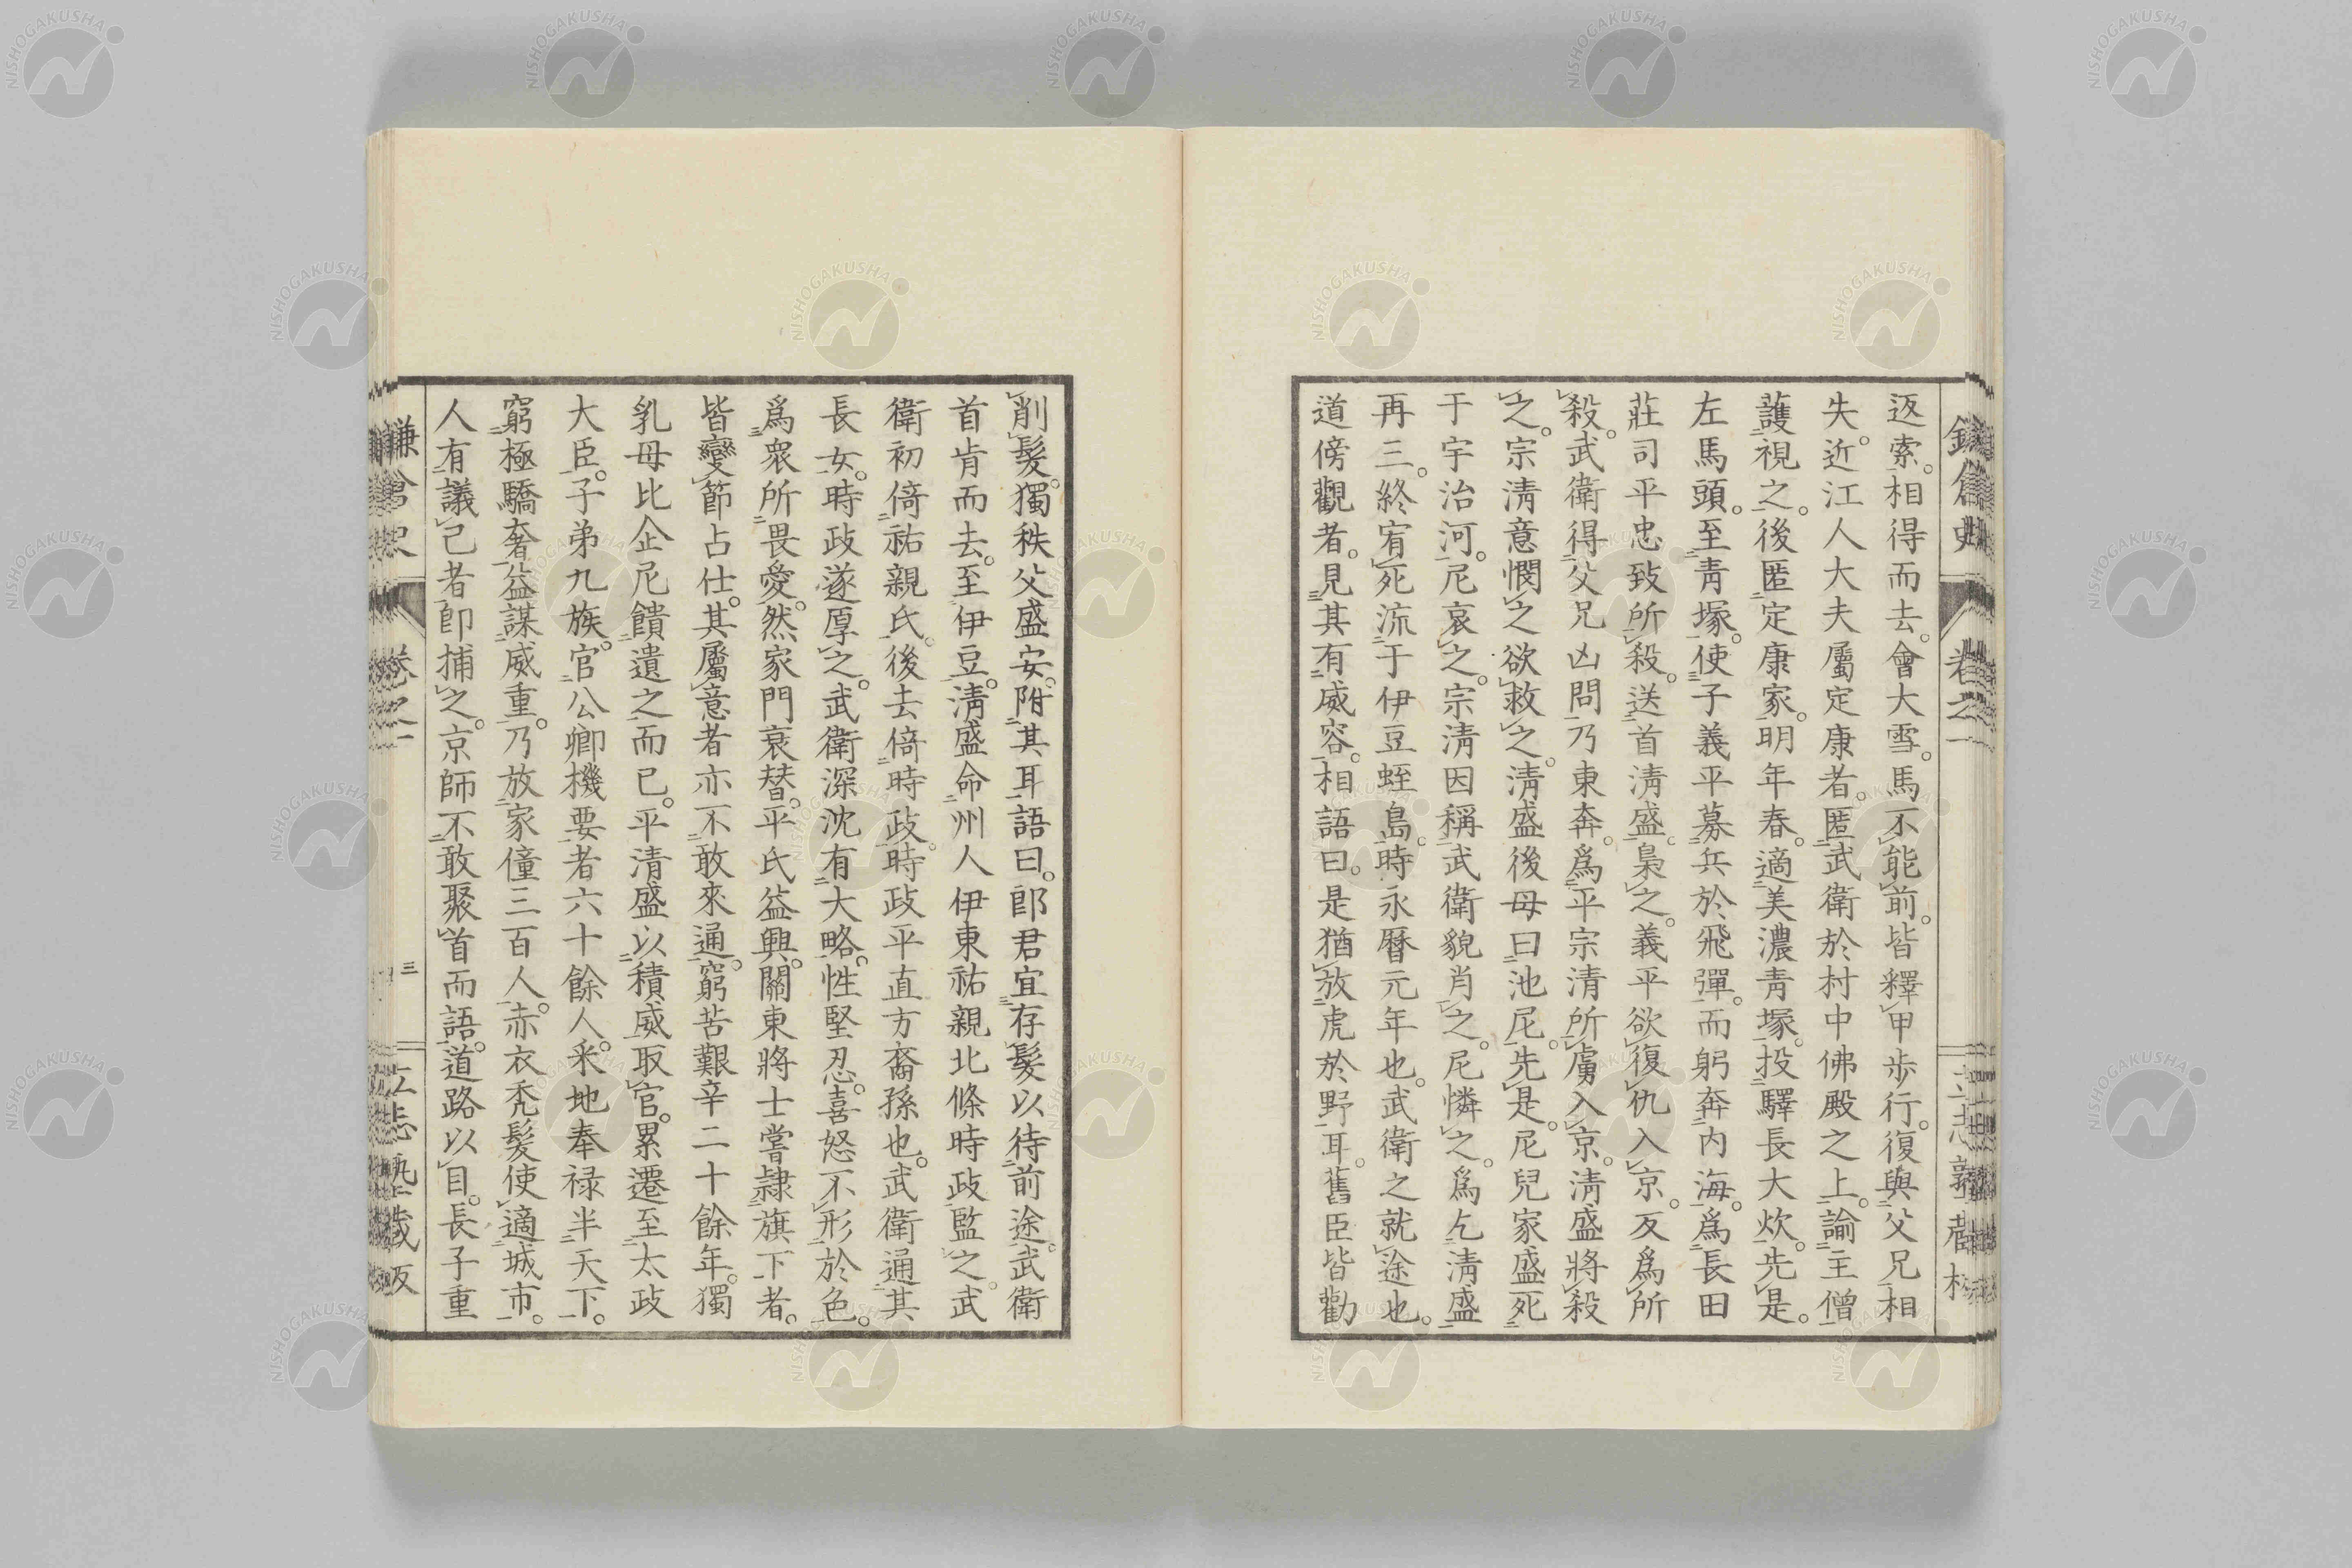 返索。相得而去。會大雪。馬不能前。皆釋甲步行。復與父兄相
失。近江人大夫屬定康者。匿武衛於村中佛殿之上。諭主僧
護視之。後匿定康家。明年春。適美濃靑塚。投驛長大炊。先是。
左馬頭。至靑塚。使子義平募兵於飛彈。而躬奔內海。爲長田
莊司平忠致所殺。送首淸盛。梟之。義平欲復仇入京。反爲所
殺。武衛得父兄凶問。乃東奔。爲平宗清所虜入京。淸盛將殺
之。宗淸意憫之欲救之。淸盛後母曰池尼。先是。尼兒家盛死
于宇治河。尼哀之。宗淸因稱武衛貌肖之。尼憐之。爲乞淸盛
再三。終宥死流于伊豆蛭島。時永曆元年也。武衛之就途也。
道傍觀者。見其有威容。相語曰。是猶放虎於野耳。舊臣皆勸
削髮。獨秩父盛安。附其耳語曰。郎君宜存髮以待前途。武衛
首肯而去。至伊豆。淸盛命州人伊東祐親北條時政監之。武
衛初倚祐親氏。後去倚時政。時政平直方裔孫也。武衛通其
長女。時政遂厚之。武衛深沈有大略。性堅忍。喜怒不形於色。
爲衆所畏愛。然家門衰替。平氏益興。關東將士嘗隷旗下者。
皆變節占仕。其屬意者亦不敢來通。窮苦艱辛二十餘年。獨
乳母比企尼饋遺之而已。平清盛以積威取官。累遷至太政
大臣。子弟九族。官公卿機要者六十餘人。釆地奉禄半天下。
窮極驕奢。益謀威重。乃放家僮三百人。赤衣禿髮使適城市。
人有議己者卽捕之。京師不敢聚首而語。道路以目。長子重
三
NISHOGAKUSHA